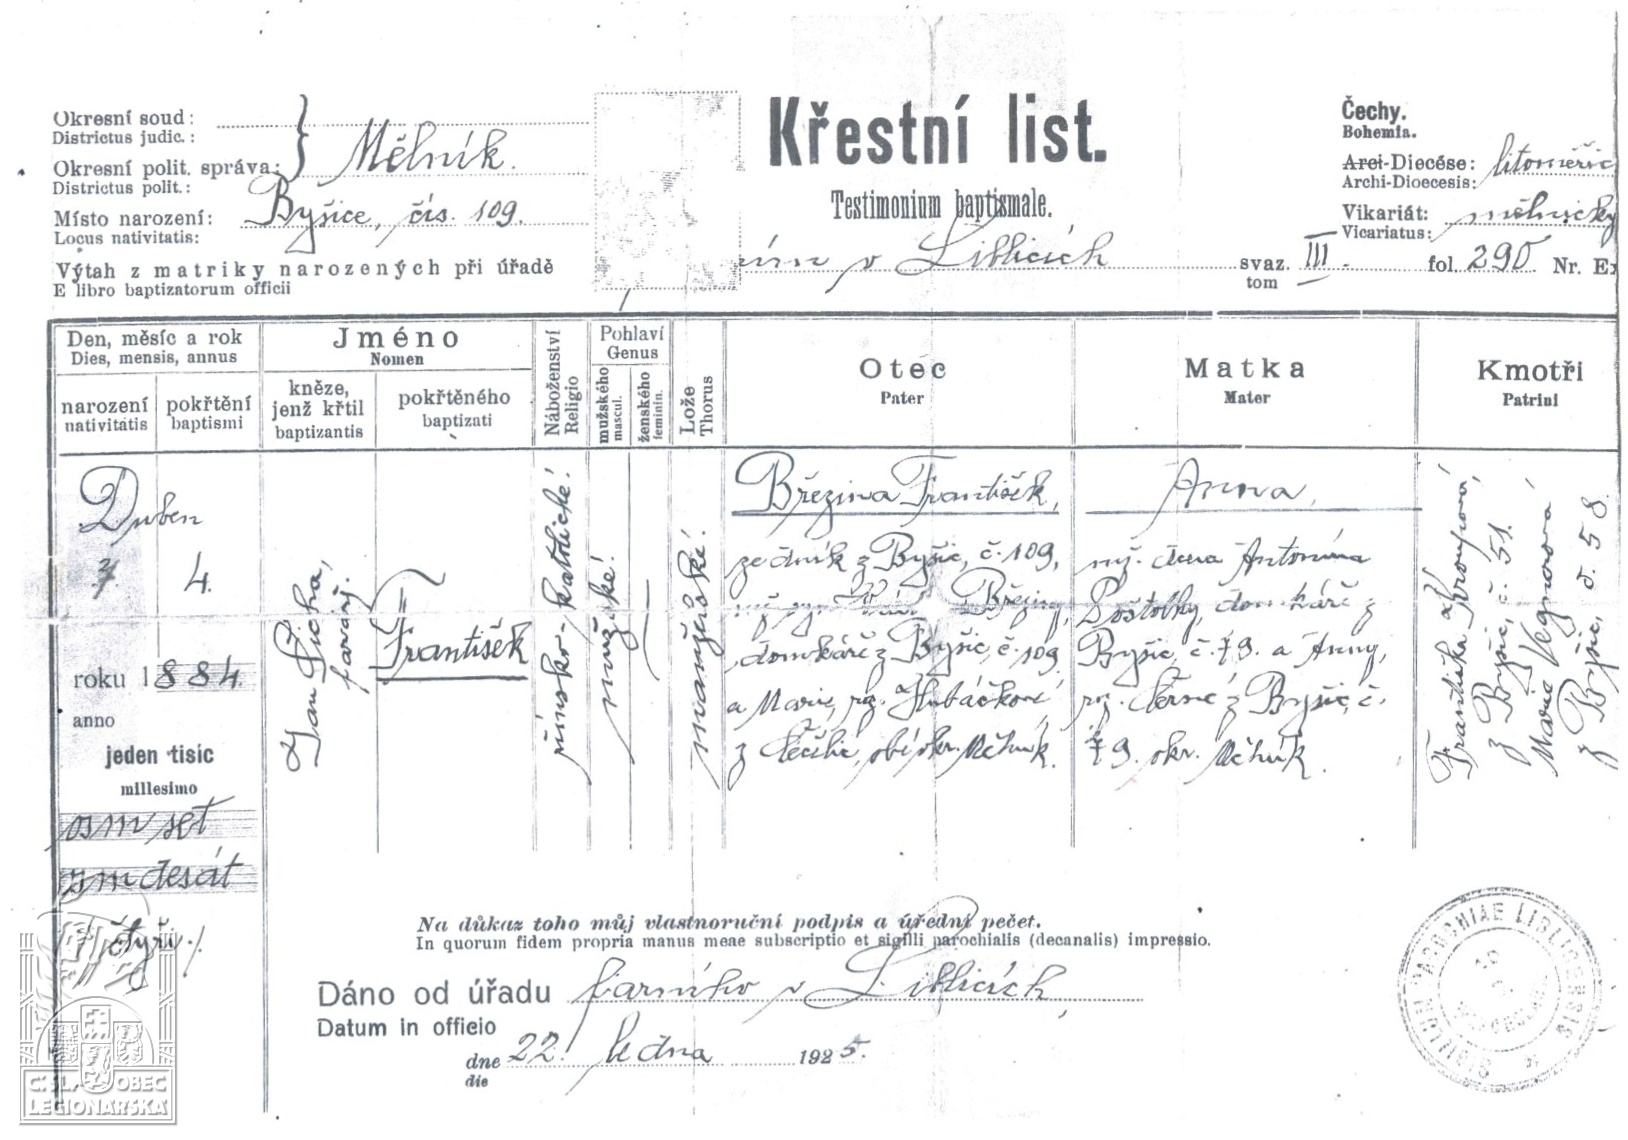 Okresní soud:
Districtus judic.:
Okresní polit. správa:
Districtus polit.:
Mělník.
Místo narození: Byšice, čís. 109.
Locus nativitatis:
Výtah z matriky narozených při úřadě
E libro baptizatorum officii
Křestní list.
Testimonium baptismale.
v Liblicích
svaz. III.
tom
fol. 290. Nr. Ex
Čechy.
Bohemia.
Arci-Diecése: litoměřic
Archi-Dioecesis:
Vikariát: mělnický
Vicariatus:
Den, měsíc a rok
Dies, mensis, annus
narození
nativitatis
pokřtění
baptismi
Jméno
Nomen
kněze,
jenž křtil
baptizantis
pokřtěného
baptizati
Náboženství
Religio
Pohlaví
Genus
mužského
mascul.
ženského
feminin.
Lože
Thorus
Otec
Pater
Matka
Mater
Kmotři
Patrini
Duben
4.
roku 1884.
anno
jeden tisíc
millesimo
osm set
osmdesát
čtyři
Jan
farář.
František
římsko-katolické!
mužské!
manželské!
Březina František,
zedník z Byšic, č. 109,
domkáře z Byšic, č. 109
a Marie, roz. Hubáčkové
z obé okr. Mělník.
Anna,
dcera Antonína
Poštolky, domkáře z
Byšic, č. 79. a Anny,
roz. Černé z Byšic, č.
79. okr. Mělník.
Františka
z Byšic, č. 51.
Marie
z Byšic, č. 58.
Na důkaz toho můj vlastnoruční podpis a úřední pečet.
In quorum fidem propria manus meae subscriptio et sigilli parochialis (decanalis) impressio.
Dáno od úřadu farního v Liblicích,
Datum in officio
dne 22. ledna 1925.
die
SIGILLUM PAROCHIAE LIBLICENSIS
Č:SL. OBEC
LEGIONÁŘSKÁ